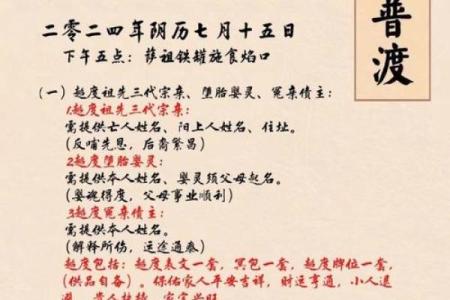 普渡
二零二四年阴历七月十五日
下午五点：萨祖铁罐施食焰口
（一）超度祖先三代宗亲、堕胎婴灵、冤亲债主：
1超度祖先三代宗亲：
需提供亡人姓名、阳上人姓名、住址。
（反哺先恩，后裔繁昌）
2超度堕胎婴灵：
需提供本人姓名、婴灵须父母起名。
（婴魂得度，父母事业顺利）
3超度冤亲债主：
需提供本人姓名。
（解释所伤，运途通泰）
超度包括：超度表文一套，冥包一套，超度牌位一套，
（供品自备）。保佑家人平安吉祥，财运亨通，小人退
避，贵人扶持，家宅兴旺